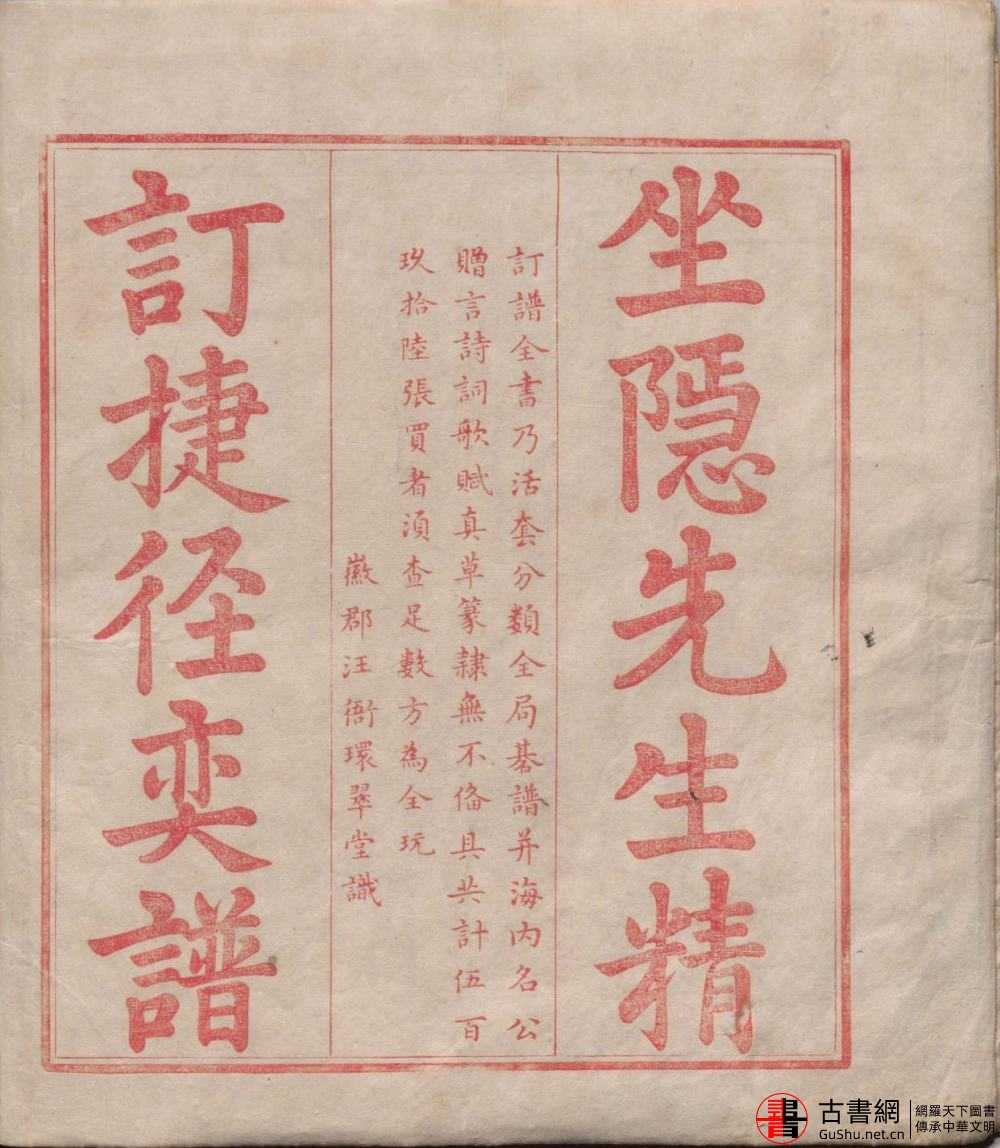 坐隱先生精
訂譜全書乃活套分類全局棊譜并海内名公
贈言詩詞歌賦真草篆隷無不俻具共計伍百
玖拾陸張買者湏查足數方為全玩
徽郡汪衙環翠堂識
訂捷径奕譜
書
古書網
GuShu.net.cn
網羅天下圖書
傳承中華文明